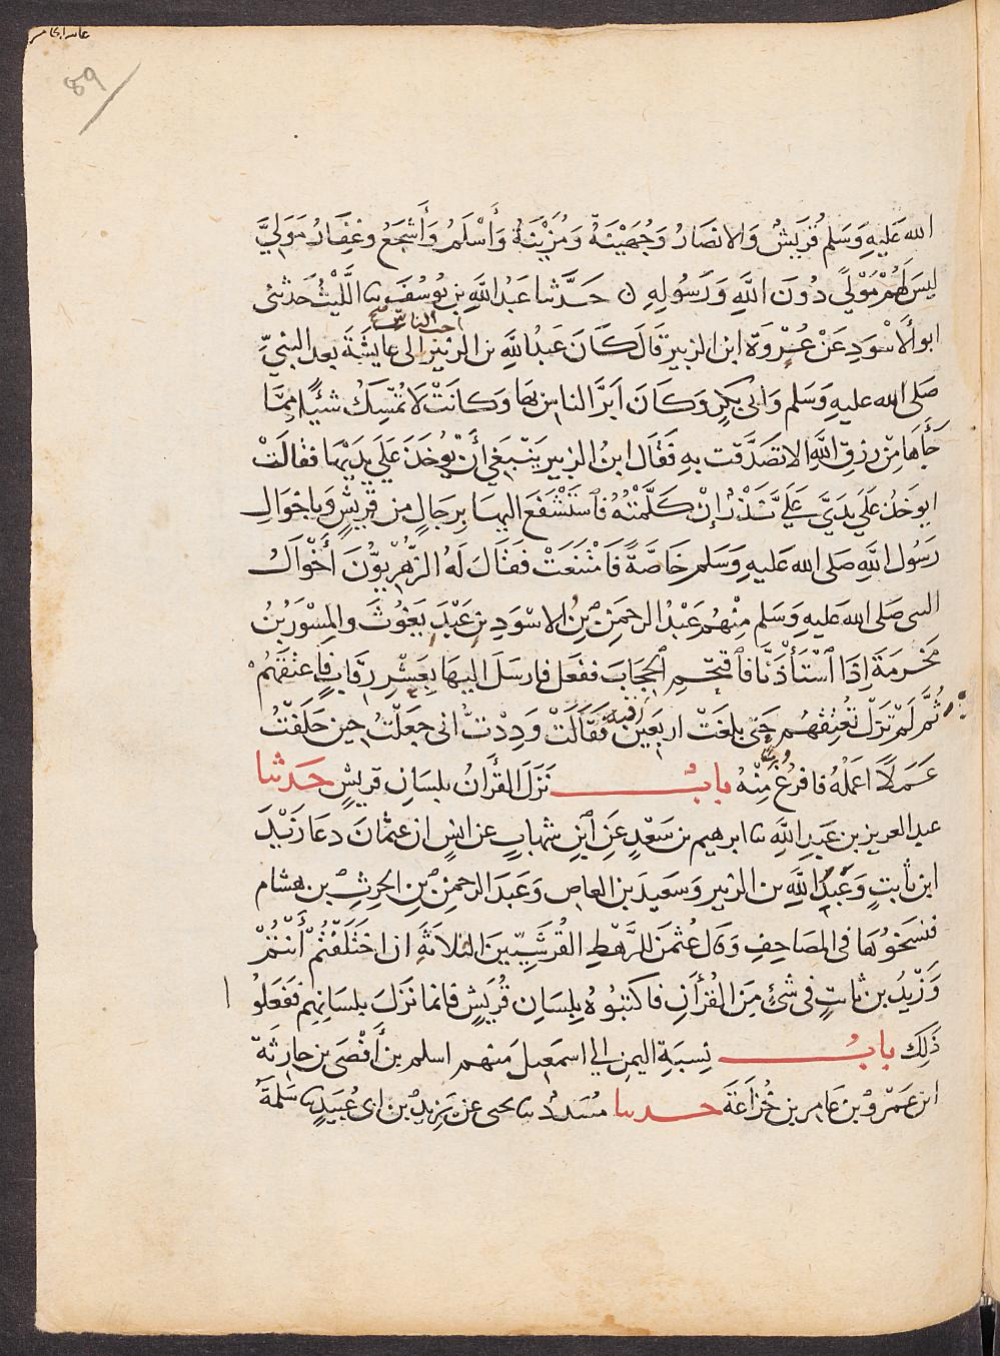 89
الله عَليهِ وَسَلم قُرَيشُ وَالانصَارُ وَجُهَيْنَةُ وَمُزَيْنَةُ وَأَسْلَمُ وَأَشْجَعُ وغِفَارُ مَوَالِيَّ
ليسَ لَهُمْ مَوْلًي دُونَ اللَّهِ وَرَسُولِهِ ن حَدَّثنا عَبْدُ اللَّهِ بن يُوسُفَ نا اللَّيْثُ حَدثنى
ابو الأَسْوَدِ عَنْ عُرْوَةَ ابن الزبير قَالَ كَانَ عَبْدُ اللَّهِ بن الزبير احب الناس الى عايشَةَ بعد النبيِّ
صَلى الله عليهِ وَسَلم وَابى بَكرٍ وَكانَ ابَرَّ الناس بهَا وَكانَتْ لَا تُمسِكُ شيئًا مِمَّا
جَأَهَا مِنْ رزقِ اللَّهِ الا تصَدَّقت بهِ فَقَال ابنُ الزبير يَنْبَغي أن يُوخَذَ عَلَي يَدَيْهَا فقالَتْ
ايوخذُ عَلَي يدَيَّ عَلَيَّ نَذْرٌ إنْ كَلَّمْتُهُ فاستَشْفَعَ اليهَا بِرجَالٍ من قُريشٍ وَباخوَالِ
رَسُول اللَّهِ صَلى الله عَليهِ وَسَلم خَاصَّةً فَامْتَنَعَتْ فَقَالَ لَهُ الزُّهْرِيُّونَ أَخْوَالُ
النبى صَلى الله عَليهِ وَسَلم مِنْهُم عَبْدُ الرحمَنِ بنِ الاسْوَدِ بنِ عَبْدِ يَغُوثَ والمِسْوَرُ بنُ
مَخرمَةَ اِذَا اسْتَأْذَنَّا فَاقتَحِمِ الحِجَابَ ففعَل فارسَلَ اليهَا بِعَشْرِ رِقَابٍ فاعتقَهُمْ
ثُمَّ لَمْ تزَلْ تُعْتِقهُم حَتى بلغَتْ اربَعِينَ رقبة فَقَالَتْ وَدِدْتُ أَنى جعَلْتُ حينَ حَلَفْتُ
عَمَلًا اعمَلُهُ فافرُغُ مِنْهُ بابُ نَزَلَ القُرأَنُ بلسَانِ قريشٍ حَدثنا
عبد العزيز بن عَبدِ اللَّهِ نا ابرهيم بن سَعْدٍ عَنِ ابْنِ شهابٍ عن انسٍ ان عثمَانَ دعَا زيْدَ
ابن ثَابتٍ وَعَبْدَ اللَّهِ بن الزبير وَسَعيدَ بن العاص وَعَبدَ الرحمنِ بنِ الحرثِ بن هشام
فنسَخوُهَا فى المصَاحِفِ وَقال عُثمَن للرَّهْطِ القُرَشِيِّينَ الثلاثَةِ اذا اختَلَفْتُمْ أَنْتُمْ
وَزَيْدُ بن ثابتٍ فى شَئٍ مِنَ القُرْأنِ فاكتبُوهُ بِلِسَانِ قُرَيشٍ فانما نَزَلَ بلسَانِهِم فَفعَلُوا
ذَلِكَ بابُ نِسبَةِ اليمن الي اسمَعيلَ منهم اسلم بن أَفْصَى بن حارِثَةَ
ابن عَمْرو بن عَامر بن خُزَاعَةَ حدثنا مُسَدَّدُ نا يحيى عن يَزِيدَ بن ابى عُبَيدٍ نا سَلَمَةُ